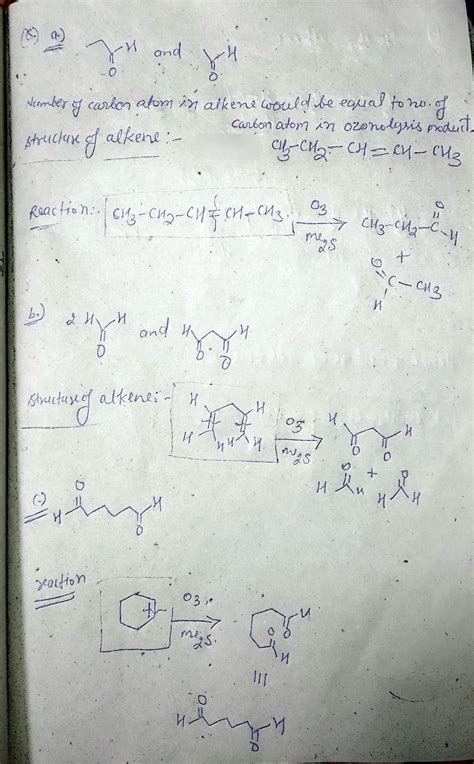 (8.) a.) H O and H O
Number of carbon atom in alkene would be equal to no. of
carbon atom in ozonolysis product
structure of alkene:-
CH3-CH2-CH=CH-CH3
Reaction:- CH3-CH2-CH=CH-CH3 O3 Me2S CH3-CH2-C-H O
+
O C-CH3 H
b.) 2 H H O and H O O H
Structure of alkene:- H H H H H H O3 Me2S H O O H
+
H O H H O H
(c.) H O O H
reaction
O3 Me2S O H O H
III
H O O H